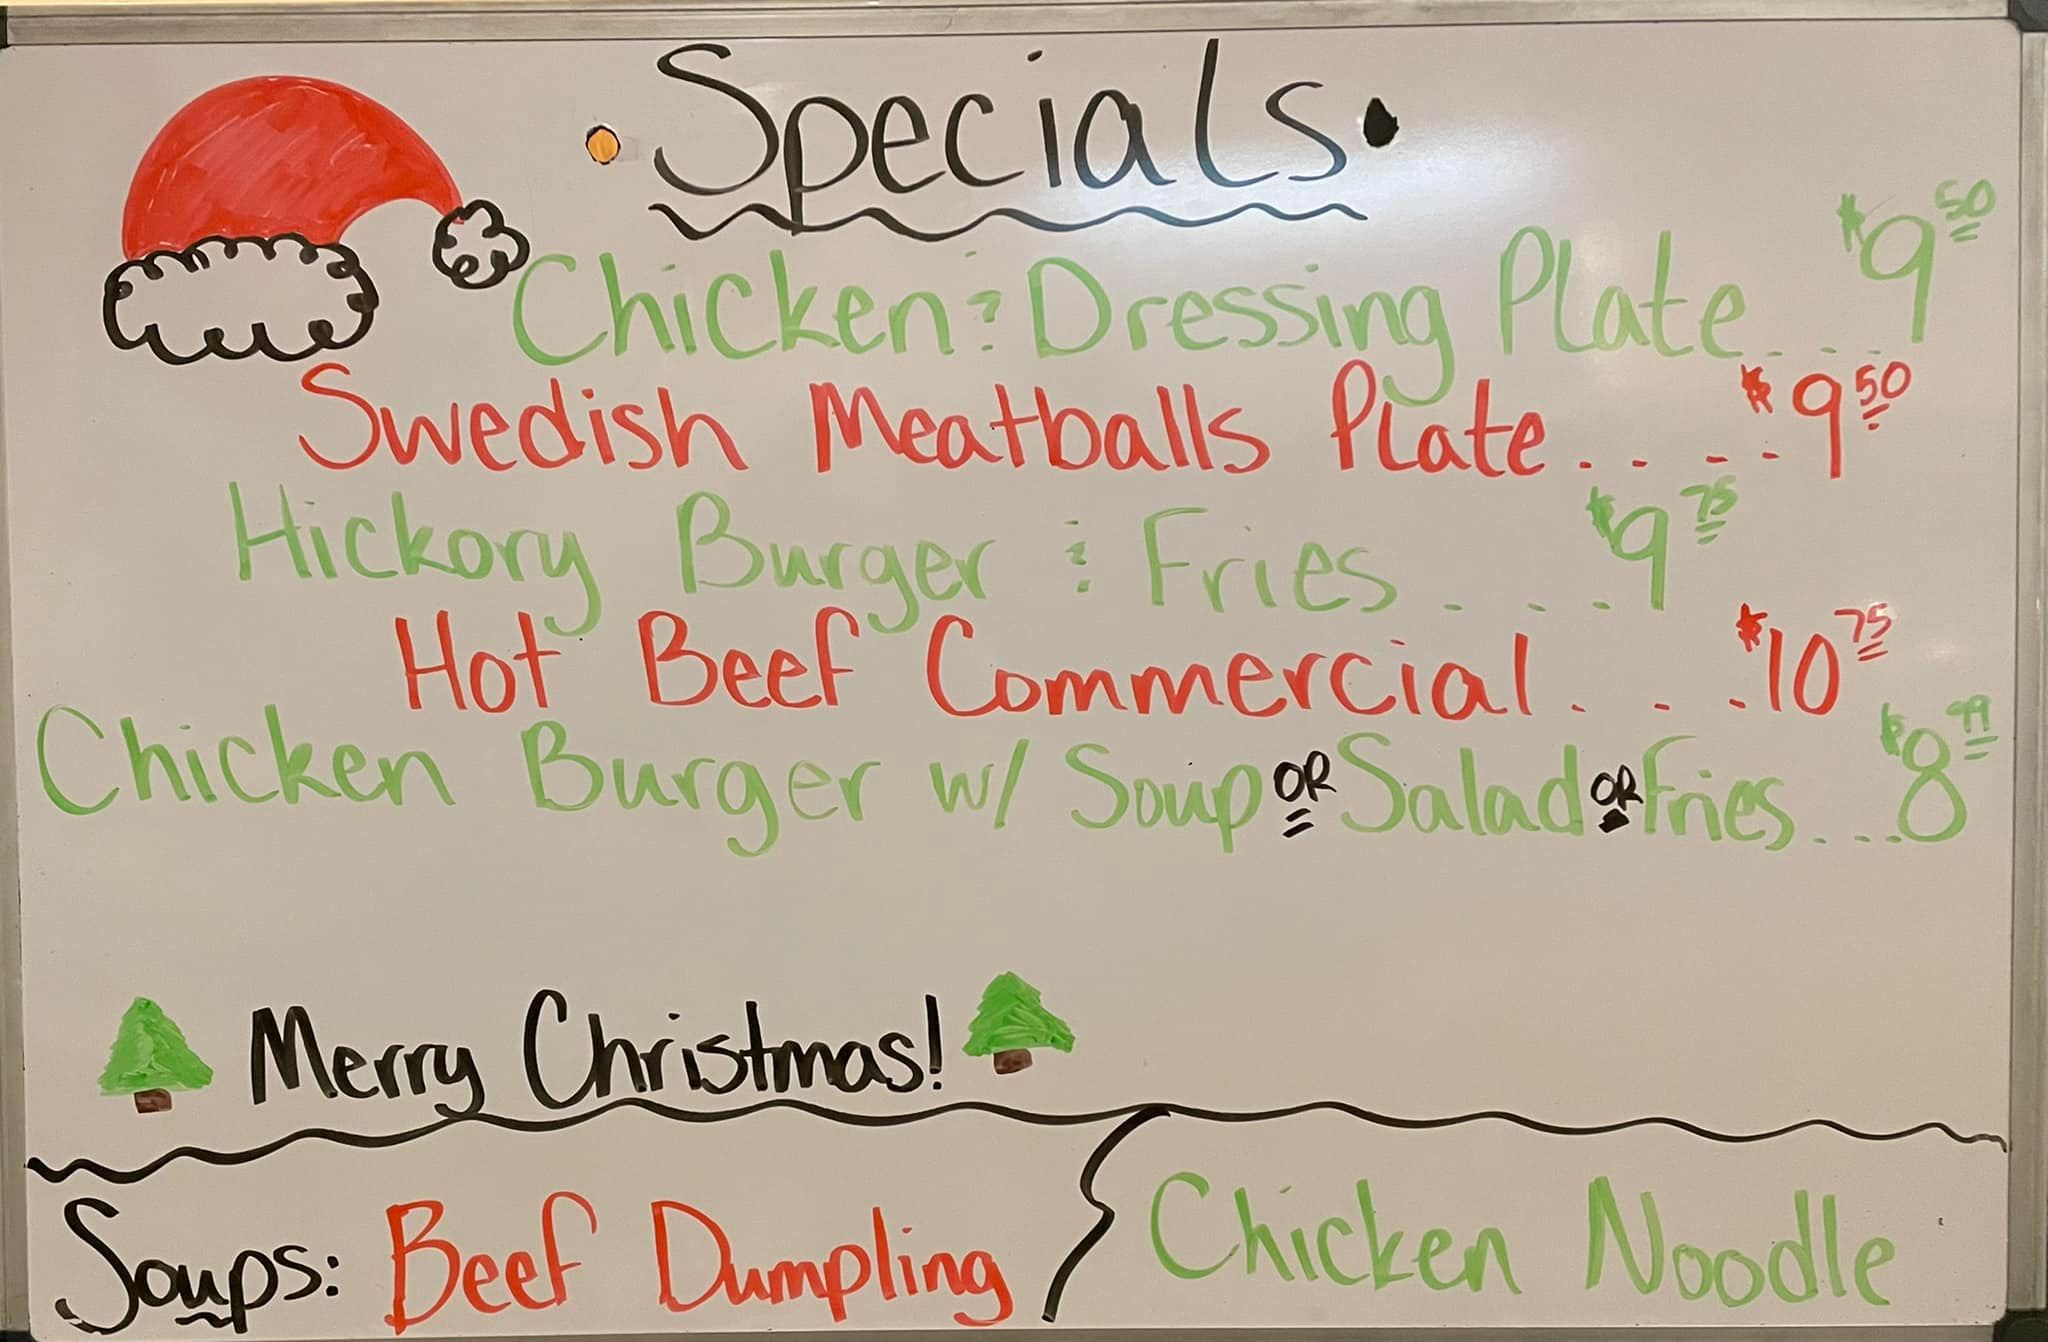 • Specials •
Chicken & Dressing Plate... $9.50
Swedish Meatballs Plate.... $9.50
Hickory Burger & Fries... $9.75
Hot Beef Commercial... $10.75
Chicken Burger w/ Soup OR Salad OR Fries... $8.99
Merry Christmas!
Soups: Beef Dumpling
Chicken Noodle